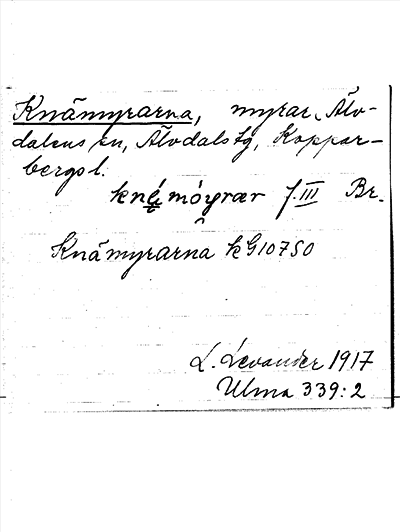 Knämyrarna, myrar, Älv-
dalens sn, Älvdals tg, Koppar-
bergs l.
móyrær f. III Br.
Knämyrarna k G10750
L. Levander 1917
Ulma 339:2